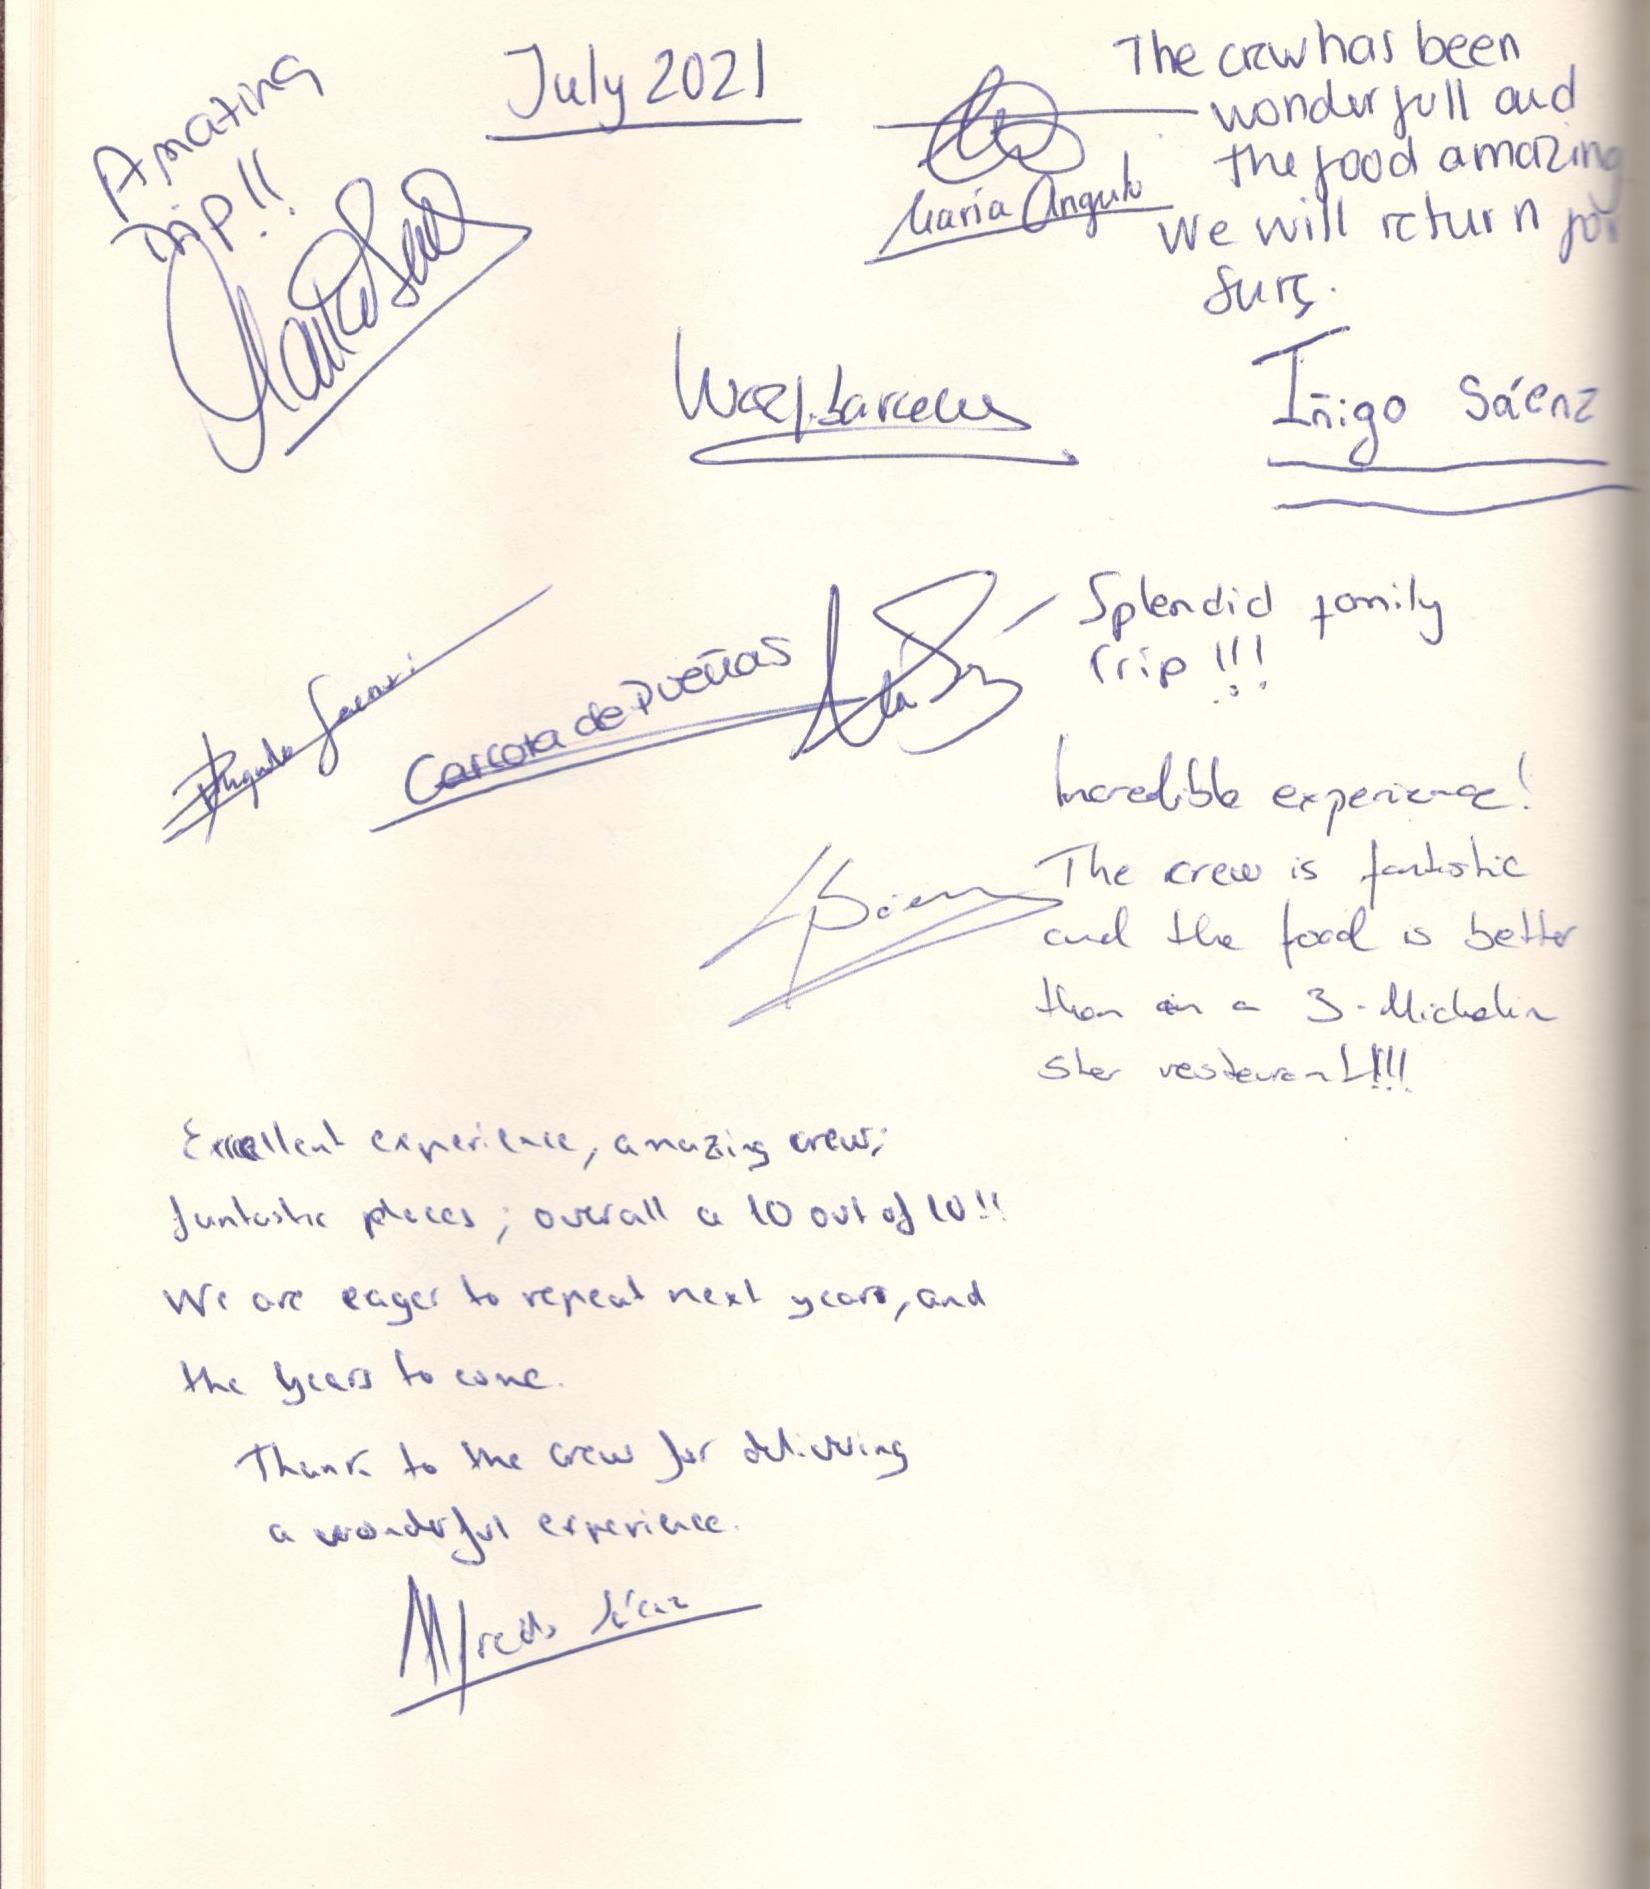 July 2021
Amazing
Trip!!
The crew has been
wonderfull and
the food amazing
We will return for
sure.
María Angulo
Iñigo Sáenz
Splendid family
Trip!!!
Carlota de Dueñas
Incredible experience!
The crew is fantastic
and the food is better
than in a 3-Michelin
star restaurant!!!
Sáenz
Excellent experience, amazing crew;
fantastic places; overall a 10 out of 10!!
We are eager to repeat next years, and
the years to come.
Thank to the crew for delivering
a wonderful experience.
Alfredo Sáenz